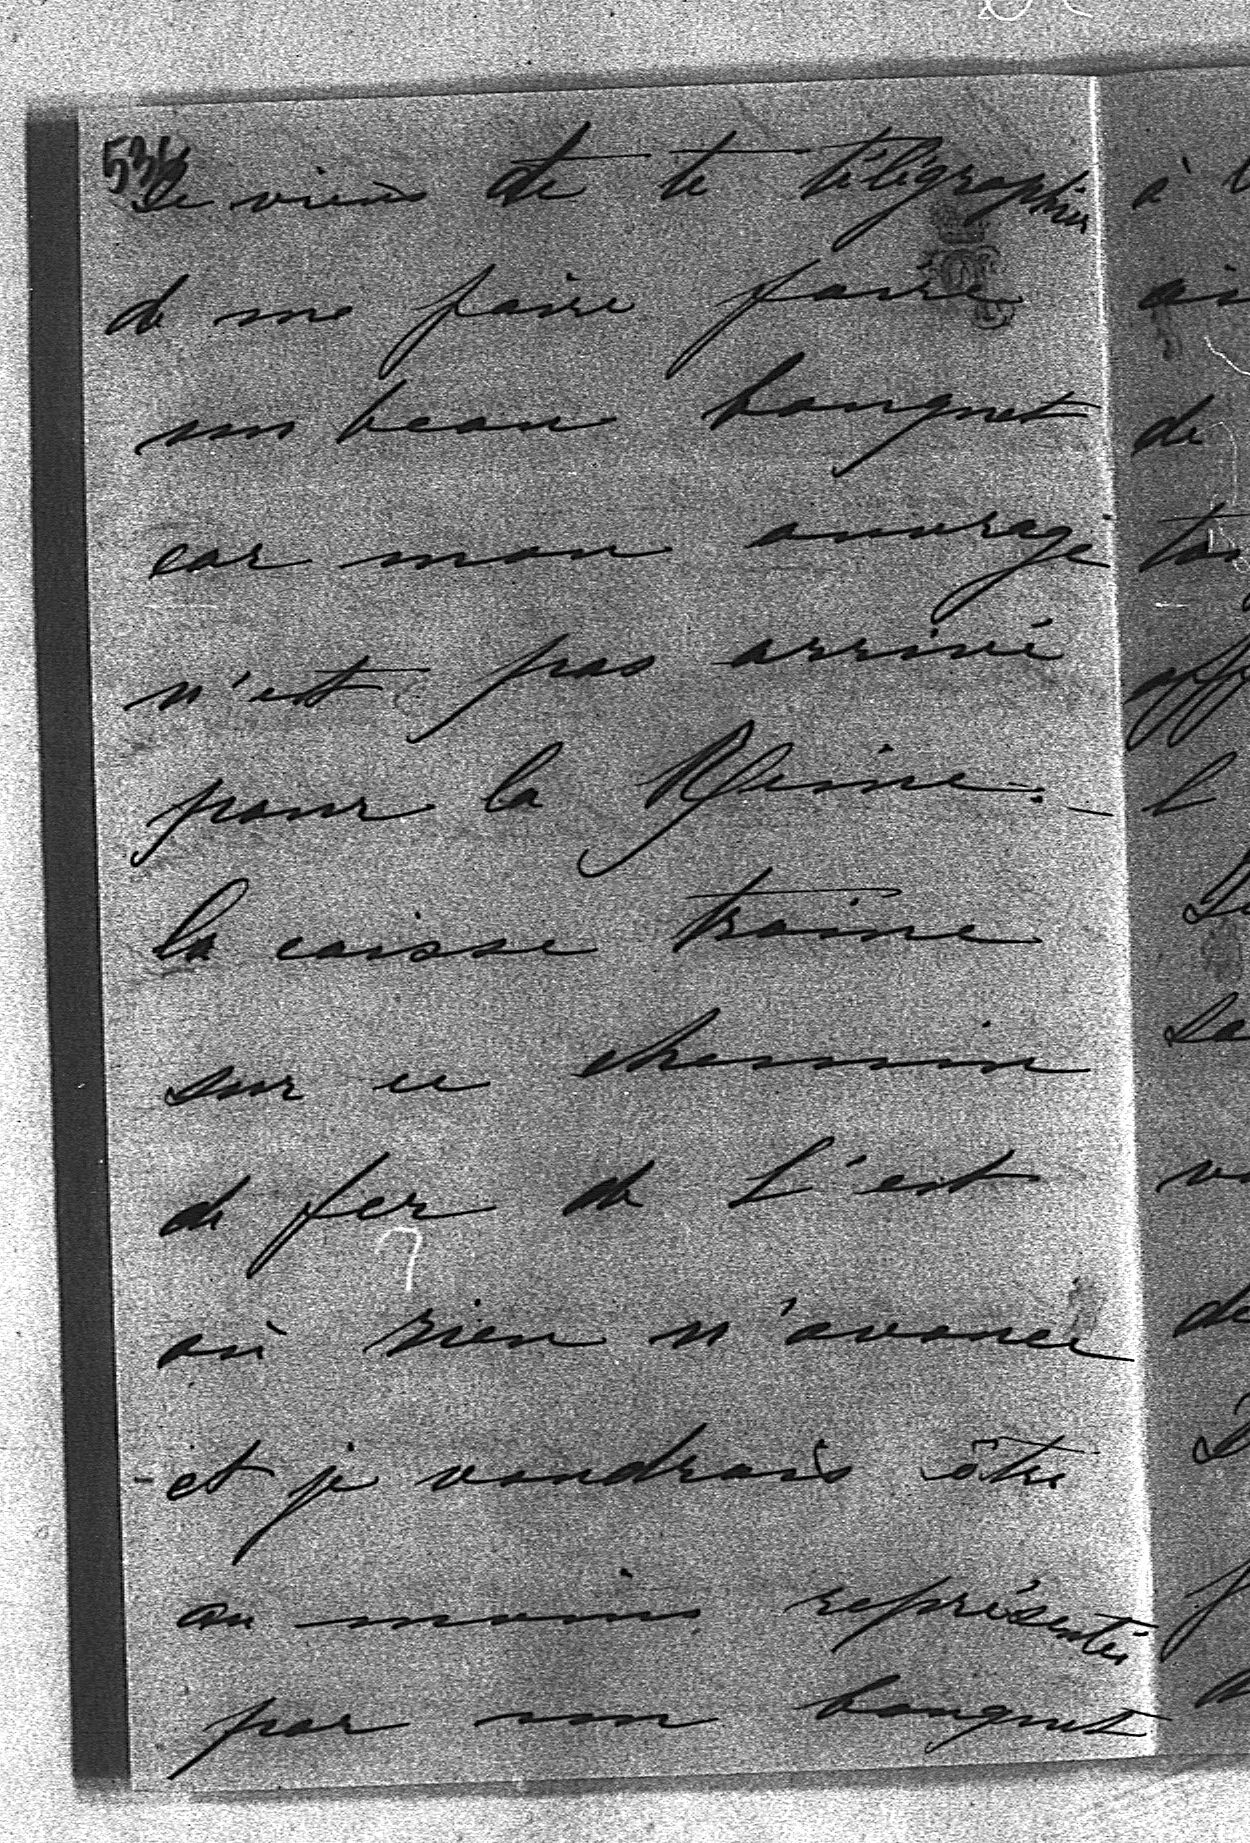 536
Je viens de te télégraphier
de me faire faire
un beau bouquet
car mon ouvrage
n'est pas arrivé
pour la Reine. -
la caisse traine
sur ce chemin
de fer de l'est
où rien n'avance
- et je voudrais être
au moins représentée
par un bouquet
à
de